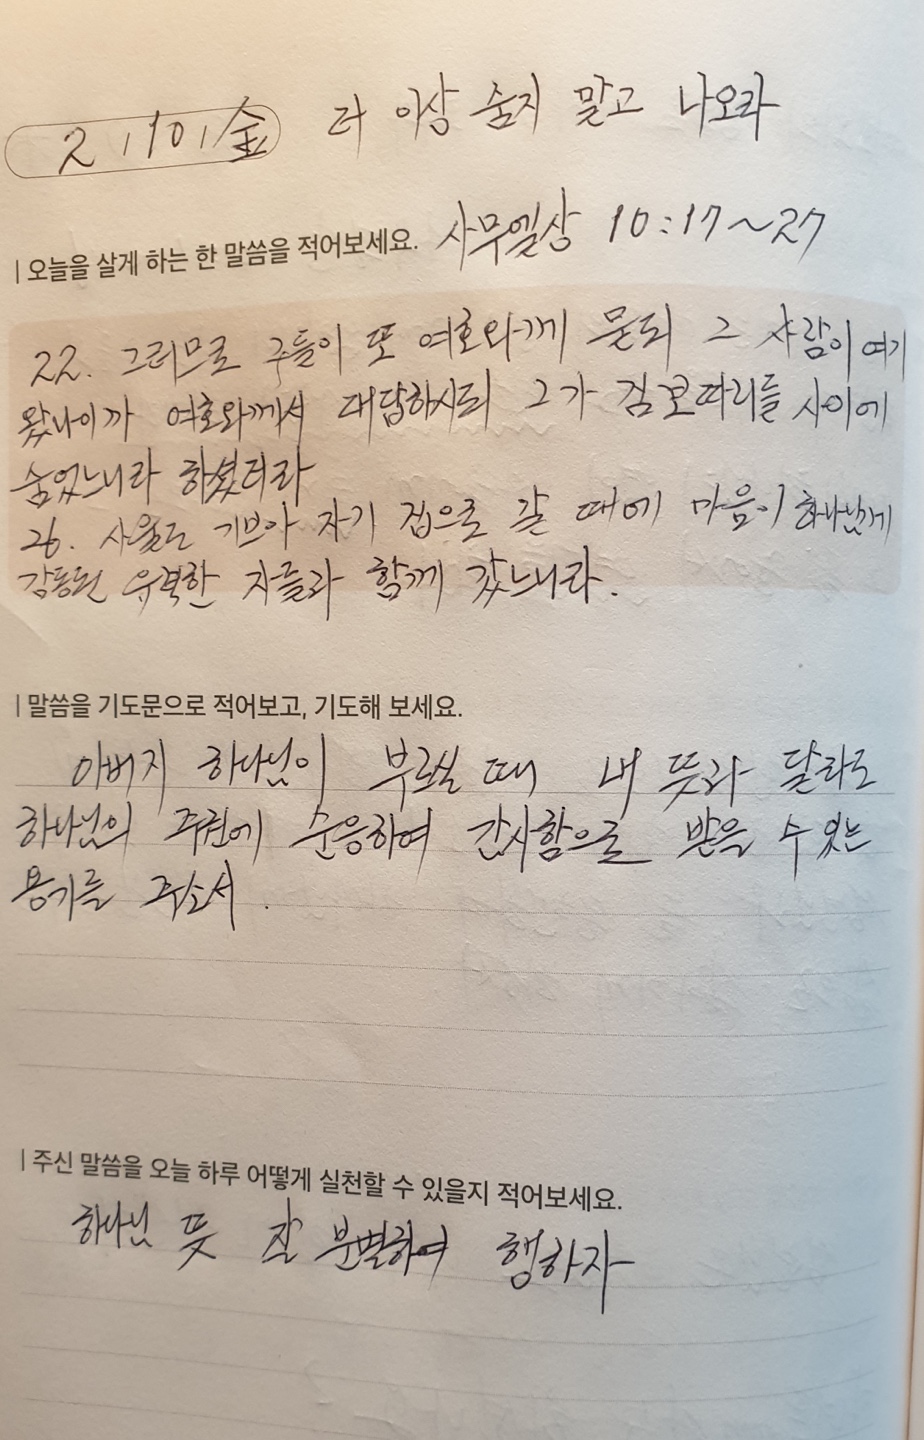 21101 金 더 이상 숨지 말고 나오라
| 오늘을 살게 하는 한 말씀을 적어보세요. 사무엘상 10:17~27
22. 그러므로 그들이 또 여호와께 묻되 그 사람이 여기
왔나이까 여호와께서 대답하시되 그가 짐보따리들 사이에
숨었느니라 하셨더라
26. 사울도 기브아 자기 집으로 갈 때에 마음이 하나님께
감동된 유력한 자들과 함께 갔느니라.
| 말씀을 기도문으로 적어보고, 기도해 보세요.
아버지 하나님이 부르실 때 내 뜻과 달라도
하나님의 주권에 순응하여 감사함으로 받을 수 있는
용기를 주소서.
| 주신 말씀을 오늘 하루 어떻게 실천할 수 있을지 적어보세요.
하나님 뜻 잘 분별하여 행하자